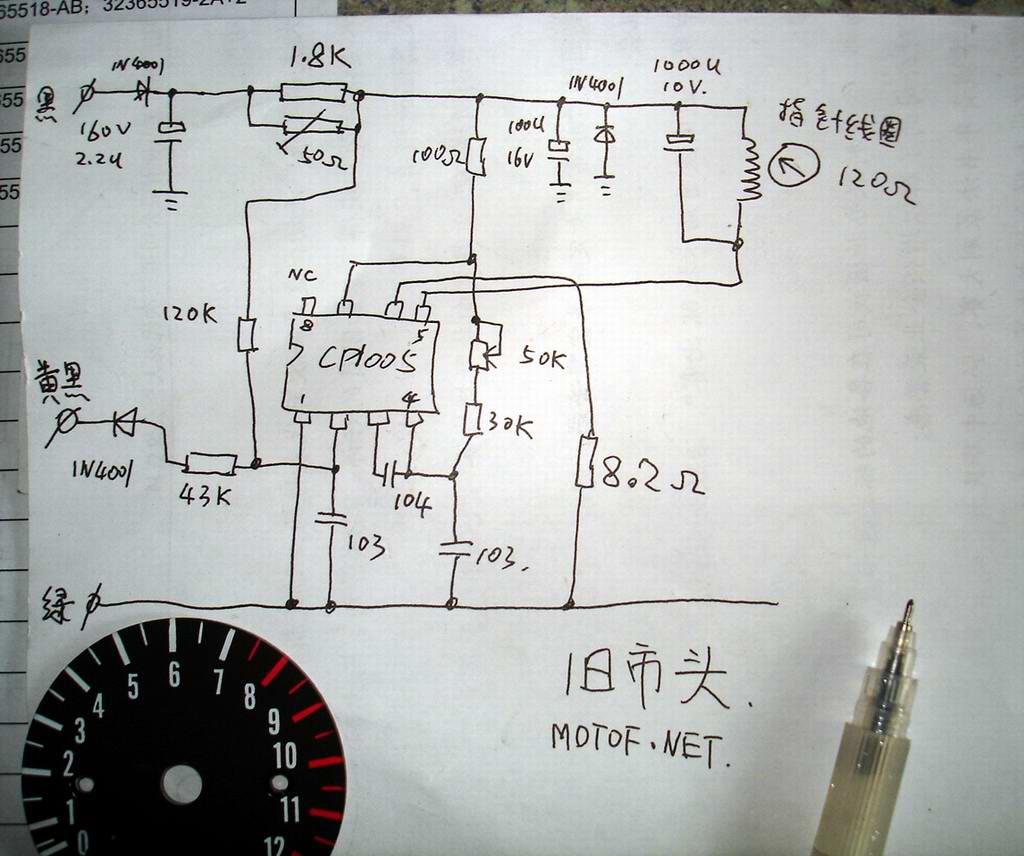 65518-AB; 32365519-2A+2
655
655
655
655
1N4001
1.8K
黑
160V
2.2U
50Ω
100Ω
100U
16V
1N4001
1000U
10V.
指针线圈
120Ω
NC
8
5
CP1005
1
4
120K
50K
30K
黄黑
1N4001
43K
104
8.2Ω
103
103.
绿
旧市头.
MOTOF.NET.
0
1
2
3
4
5
6
7
8
9
10
11
12